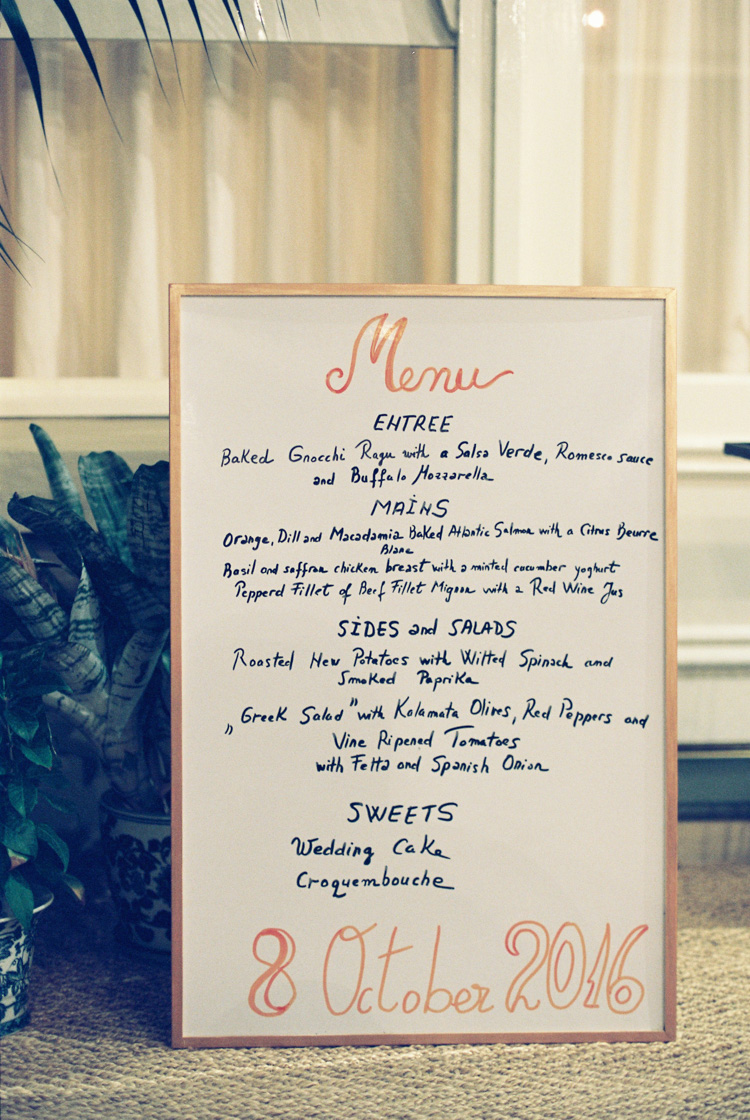 Menu
ENTREE
Baked Gnocchi Ragu with a Salsa Verde, Romesco sauce
and Buffalo Mozzarella
MAINS
Orange, Dill and Macadamia Baked Atlantic Salmon with a Citrus Beurre
Blanc
Basil and saffron chicken breast with a minted cucumber yoghurt
Pepperd Fillet of Beef Fillet Mignon with a Red Wine Jus
SIDES and SALADS
Roasted New Potatoes with Wilted Spinach and
Smoked Paprika
„Greek Salad" with Kalamata Olives, Red Peppers and
Vine Ripened Tomatoes
with Fetta and Spanish Onion
SWEETS
Wedding Cake
Croquembouche
8 October 2016